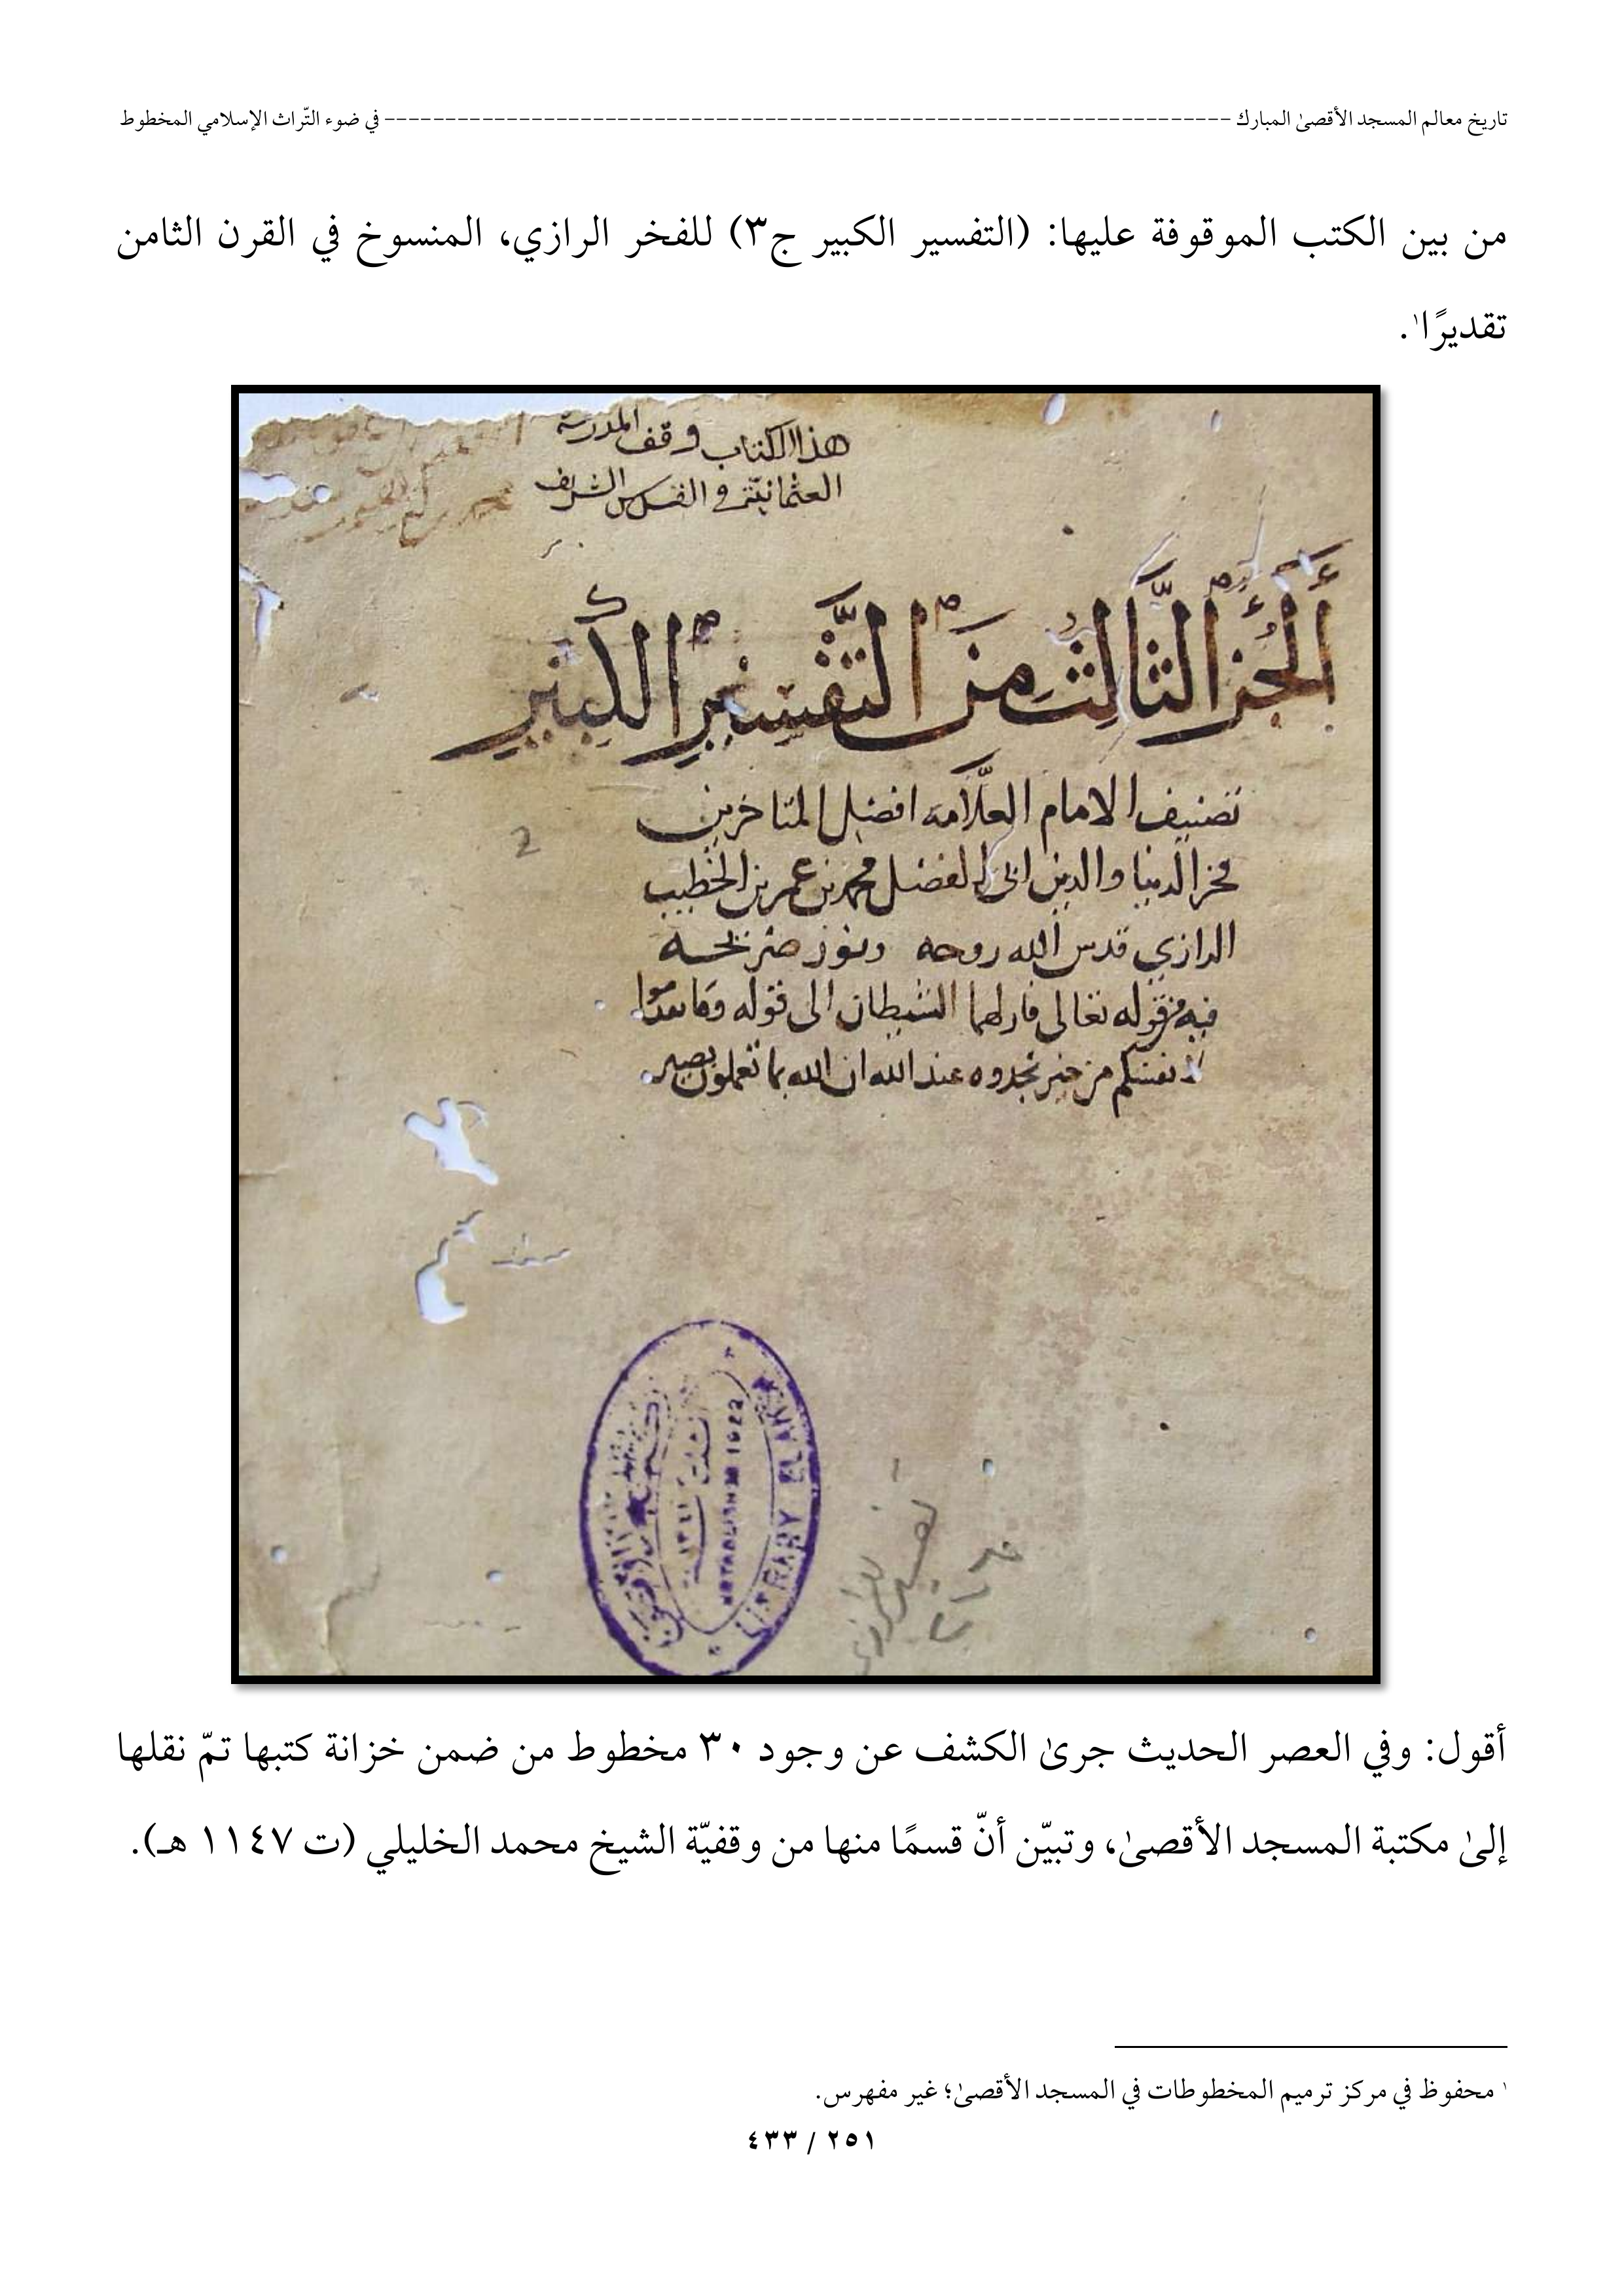 تاريخ معالم المسجد الأقصىٰ المبارك ------------------------------------------------------------------------ في ضوء التّراث الإسلامي المخطوط
من بين الكتب الموقوفة عليها: (التفسير الكبير ج٣) للفخر الرازي، المنسوخ في القرن الثامن
تقديرًا١.
هذا الكتاب وقف المدرسة
العثمانية في القدس الشريف
أَلْجُزْءُ الثَّالِثُ مِنَ التَّفْسِيرِ الكَبِيرِ
تصنيف الامام العلّامة افضل المتاخرين
فخر الدنيا والدين ابي الفضل محمد بن عمر بن الخطيب
الرازي قدس الله روحه ونور ضريحه
فيه من قوله تعالى فازلهما الشيطان الى قوله وما تقدموا
لانفسكم من خير تجدوه عند الله ان الله بما تعملون بصير
2
LIBRARY EL AKSA
ESTABLISHED 1922
تفسير الرازي
أقول: وفي العصر الحديث جرىٰ الكشف عن وجود ٣٠ مخطوط من ضمن خزانة كتبها تمّ نقلها
إلىٰ مكتبة المسجد الأقصىٰ، وتبيّن أنّ قسمًا منها من وقفيّة الشيخ محمد الخليلي (ت ١١٤٧ هـ).
١ محفوظ في مركز ترميم المخطوطات في المسجد الأقصىٰ؛ غير مفهرس.
٢٥١ / ٤٣٣